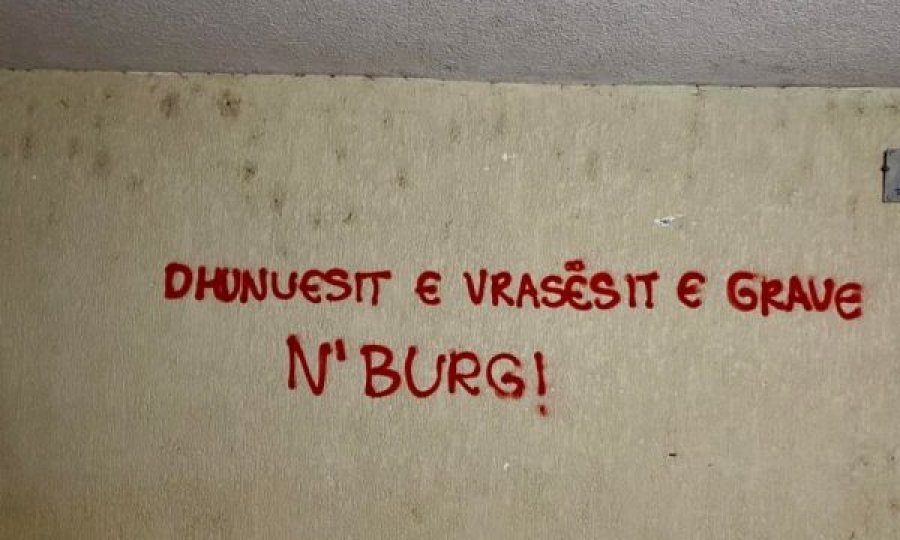 DHUNUESIT E VRASËSIT E GRAVE
N'BURG!